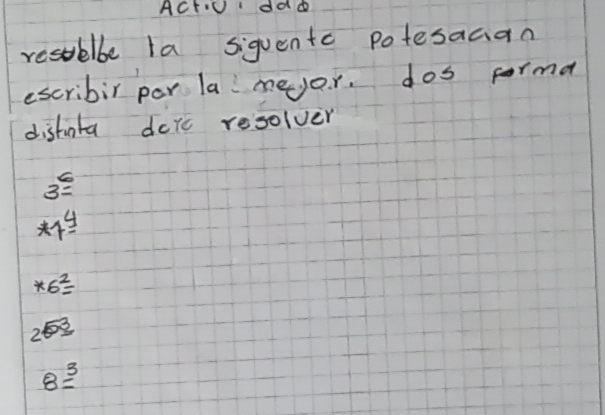 Activ i dad
resuelbe la siguente potesacian
escribir por la mejor. dos forma
distinta de re resolver
3⁶=
*1⁴=
*6²=
8³=